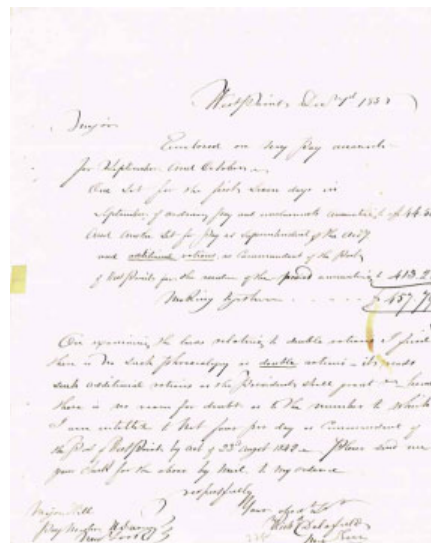 West Point Dec 7th 183
Major
Enclosed are my Pay accounts
for September and October
One Set for the first Seven days in
September, of ordinary pay and emoluments amounting to $44.5
And another Set for Pay as Superintendent of the
and additional rations as Commandant of the Post
of West Point for the residue of the period amounting $ 413.2
Making together - - - - $ 457.7
On examining the laws relating to double rations I find
there is no such phraseology as double rations - its reads
such additional rations as the President shall grant
there is no room for doubt as to the number to which
I am entitled to Not four per day as Commandant of
the Post of West Point by act of 23d August 1842 - Please send me
your Check for the above by Mail to my order
respectfully
Your
Major Hill
Pay Master U.S. Army
New York
Rich Delafield